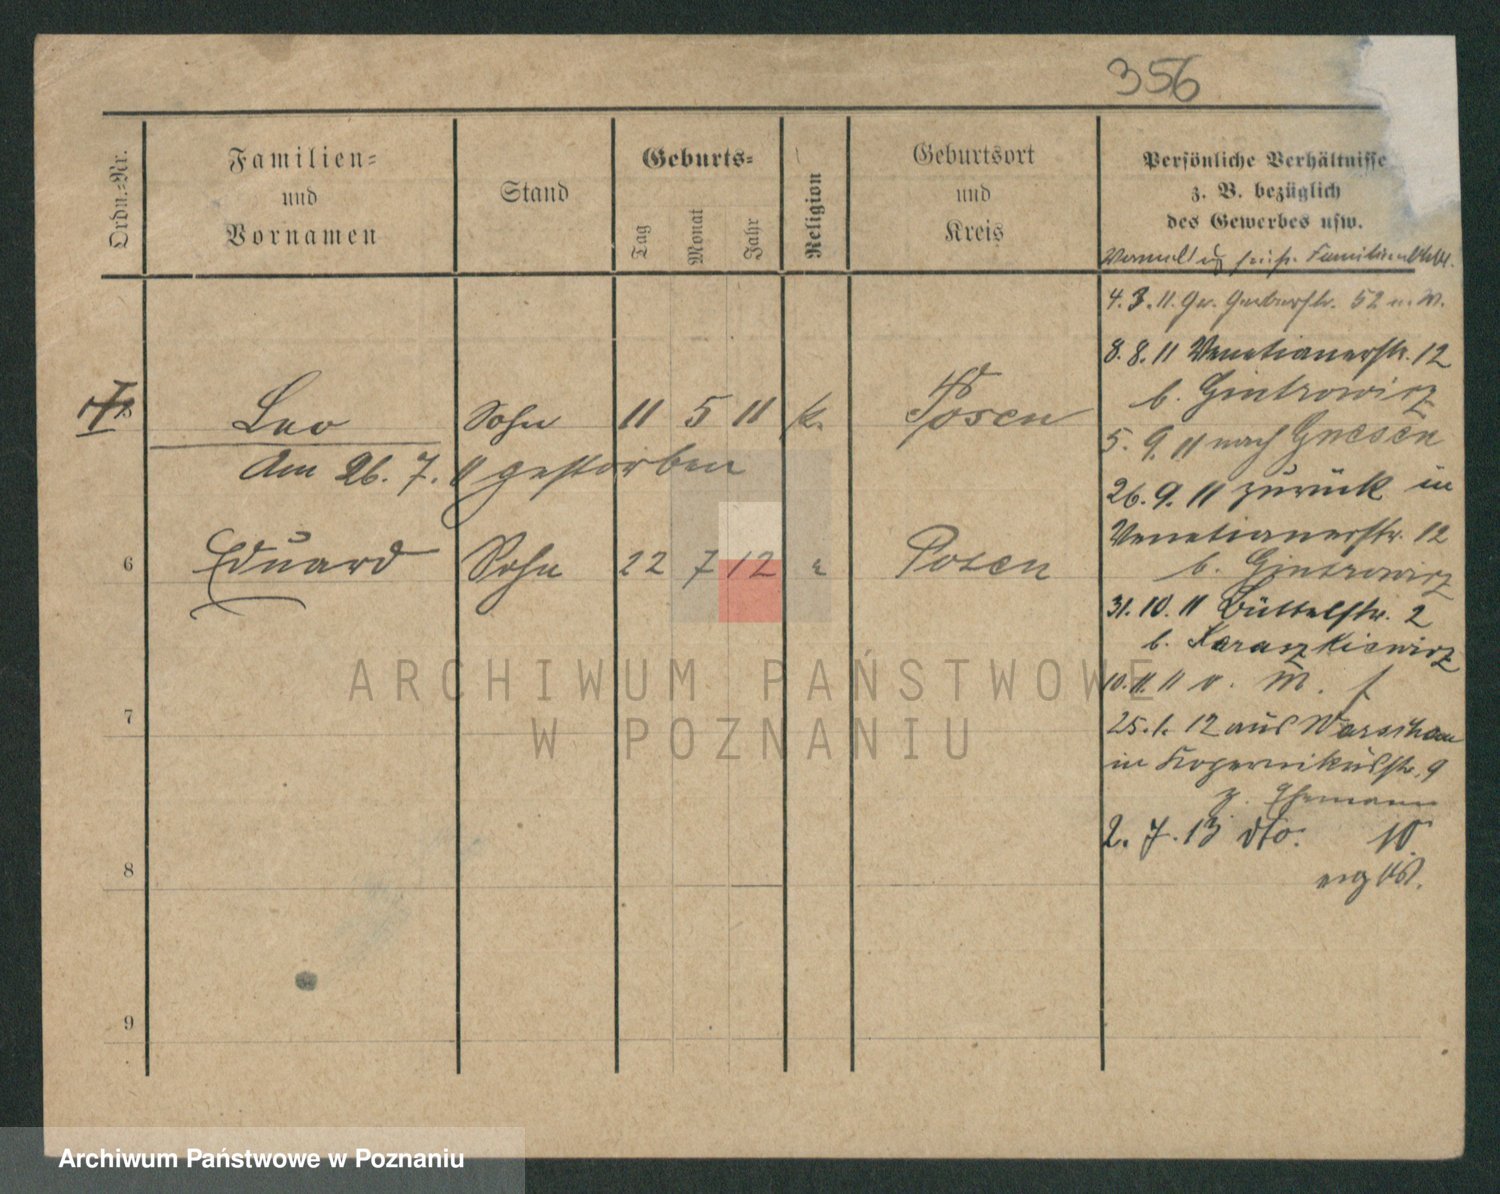 356
Ordn.=Nr.
Familien=
und
Vornamen
Stand
Geburts=
Tag
Monat
Jahr
Religion
Geburtsort
und
Kreis
Persönliche Verhältnisse
z. B. bezüglich
des Gewerbes usw.
4. 3. 11 Gr. Gerberstr. 52 n. W.
8. 8. 11 Venetianerstr. 12
b. Gintrowicz
5 Leo Sohn 11 5 11 k. Posen
5. 9. 11 nach Gnesen
Am 26. 7. 11 gestorben
26. 9. 11 zurück in
Venetianerstr. 12
b. Gintrowicz
6 Eduard Sohn 22 7 12 Posen
31. 10. 11 Büttelstr. 2
b. Karaszkiewicz
10. 11. 11 v. W.
7
25. 1. 12 aus Warschau
in Kopernikusstr. 9
z. Ehemann
2. 7. 13 dto. 10
8
9
ARCHIWUM PAŃSTWOWE
W POZNANIU
Archiwum Państwowe w Poznaniu